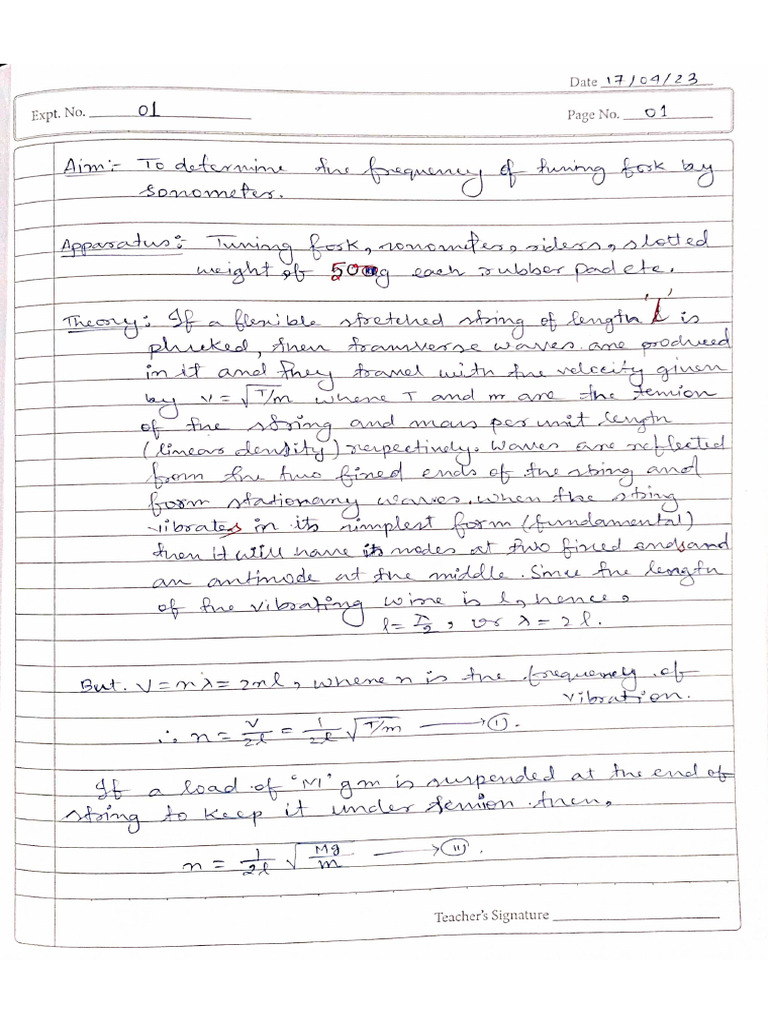 Date 17/04/23
Expt. No. 01
Page No. 01
Aim:- To determine the frequency of tuning fork by
sonometer.
Apparatus:- Tuning fork, sonometer, riders, slotted
weight of 500g each rubber pad etc.
Theory:- If a flexible stretched string of length 'l' is
plucked, then transverse waves are produced
in it and they travel with the velocity given
by v = √T/m where T and m are the tension
of the string and mass per unit length
(linear density) respectively. Waves are reflected
from the two fixed ends of the string and
form stationary waves. when the string
vibrates in its simplest form (fundamental)
then it will have its nodes at two fixed ends and
an antinode at the middle. Since the length
of the vibrating wire is l, hence,
l = λ/2, or λ = 2l.
But. V = nλ = 2nl, where n is the frequency of
vibration.
∴ n = V/2l = 1/2l √T/m ⟶ (i).
If a load of 'M' gm is suspended at the end of
string to keep it under tension then,
n = 1/2l √Mg/m ⟶ (ii).
Teacher's Signature